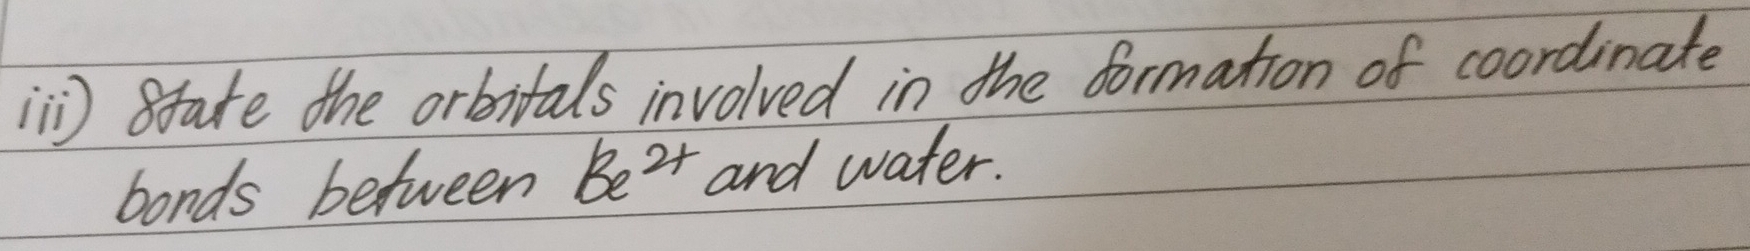 iii) State the orbitals involved in the formation of coordinate
bonds between Be²⁺ and water.